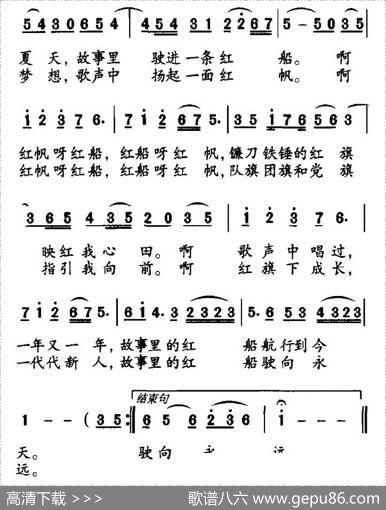 5 4 3 0 6 5 4 | 4 5 4 5 3 1 2·2 6 7 | 5 - 5 0 3 5 |
夏 天，故事里 驶进一条红 船。 啊
梦 想，歌声中 扬起一面红 帆。 啊
1 2 3 7 6· | 7 1 2 6 7 5· | 3 5 1 7 6 5 6·3 |
红帆呀红船，红船呀红 帆，镰刀铁锤的红 旗
红帆呀红船，红船呀红 帆，队旗团旗和党 旗
3 6 5 4 3 5 | 2 0 3 5 | 1 2 3 7 6· |
映红我心 田。啊 歌声中唱过，
指引我向 前。啊 红旗下成长，
7 1 2 6 7 5· | 6 1 4· 3 2 3 2 3 | 5· 6 5 3 4 3 2 3 |
一年又一 年，故事里的红 船航行到今
一代代新 人，故事里的红 船驶向 永
结束句
1 - - ( 3 5 :‖ 6 5 6 2 3 6 | 1 - - ‖
天。 驶向 永 远
远。
高清下载 >>>
歌谱八六 www.gepu86.com